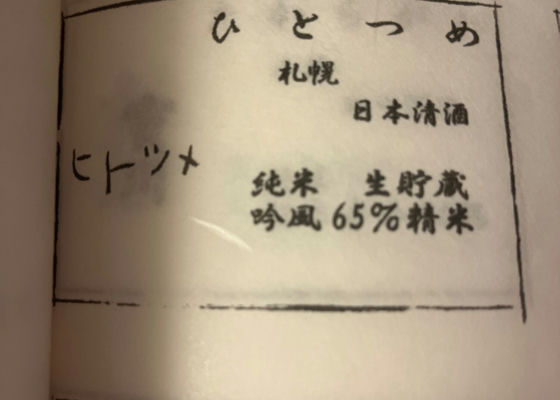 ひとつめ
札幌
日本清酒
ヒトツメ
純米 生貯蔵
吟風 65%精米